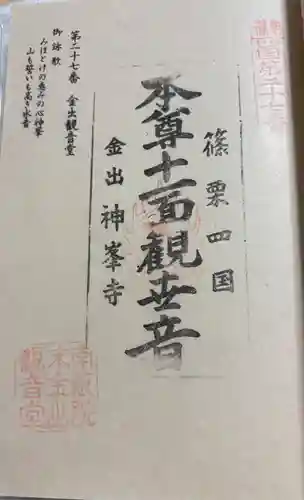 篠栗四国
本尊十一面観世音
金出 神峯寺
第二十七番 金出観音堂
御詠歌
みほとけの恵みの心神峯
山も誓いも高き水音